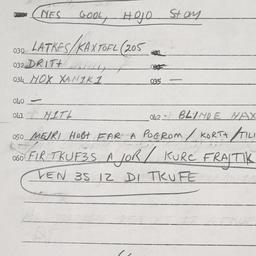 (NES GODL, HOJO STOM
030 LATKES/KAXTOFL (205
032 DRITH
034 NOX XANIKI 035 —
040 —
041 NITL 042 - BLINDE NAX
050 MEJRI HOBT FAR A POGROM / KORTA /TILI
060 FIR TKUFES A JOR/ KURC FRAJTIK
VEN 35 IZ DI TKUFE